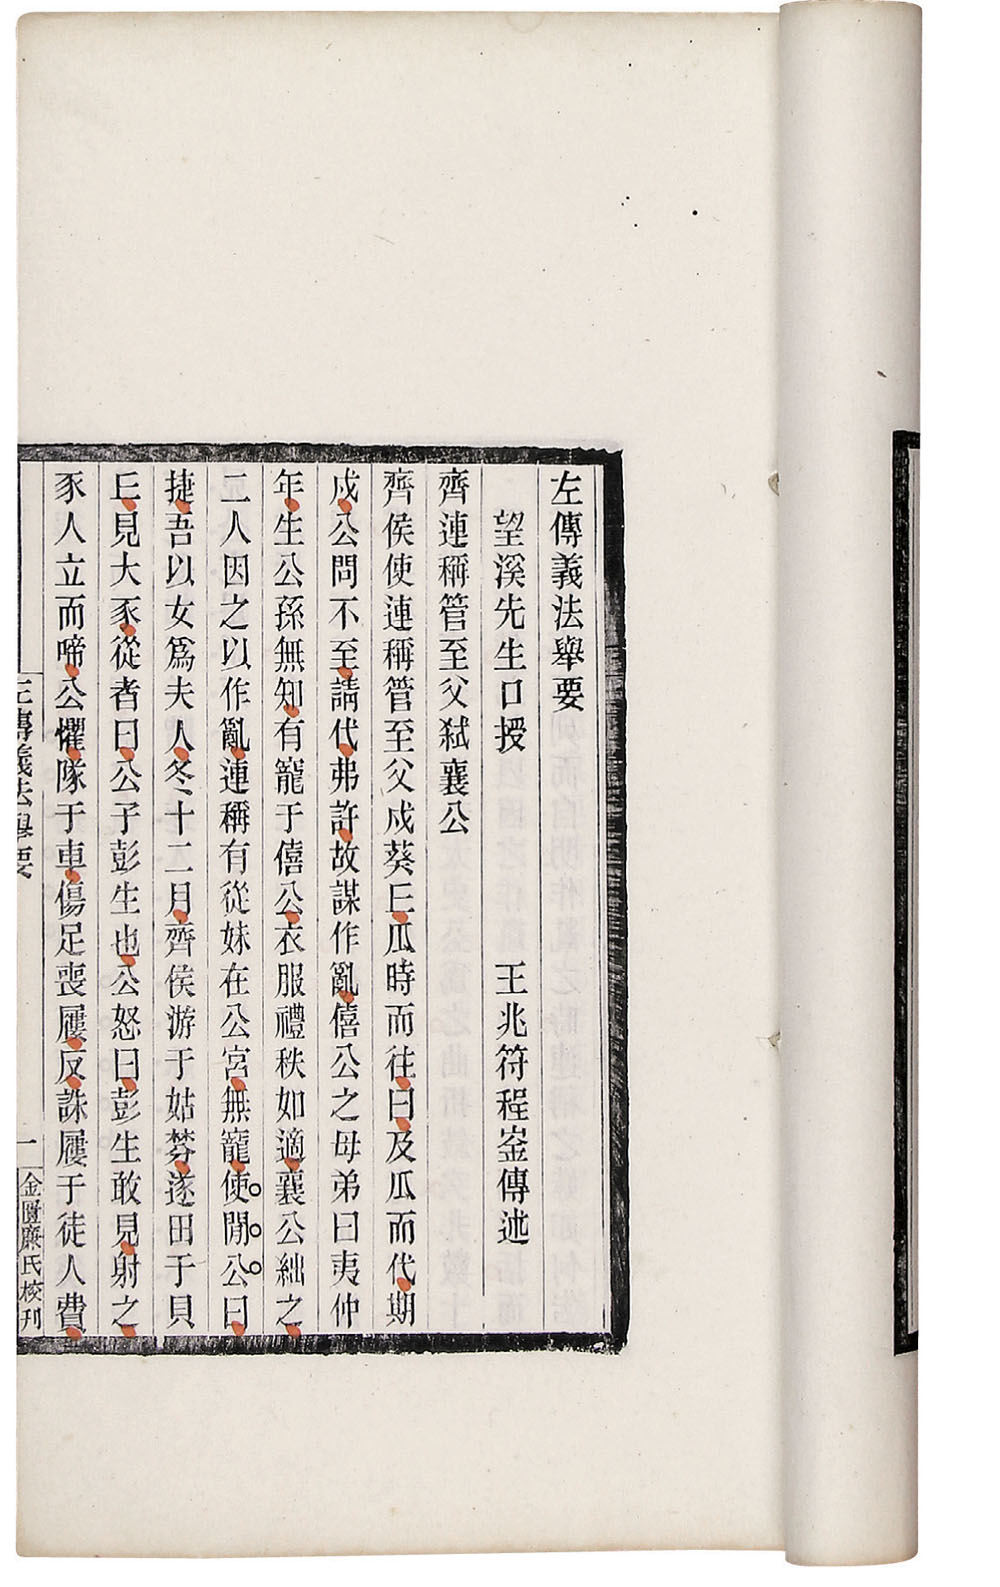 左傳義法舉要
望溪先生口授　王兆符程崟傳述
齊連稱管至父弑襄公
齊侯使連稱管至父戍葵丘瓜時而往曰及瓜而代期
戍公問不至請代弗許故謀作亂僖公之母弟曰夷仲
年生公孫無知有寵于僖公衣服禮秩如適襄公絀之
二人因之以作亂連稱有從妹在公宮無寵使閒公曰
捷吾以女爲夫人冬十二月齊侯游于姑棼遂田于貝
丘見大豕從者曰公子彭生也公怒曰彭生敢見射之
豕人立而啼公懼隊于車傷足喪屨反誅屨于徒人費
左傳義法舉要
一
金匱廉氏校刊